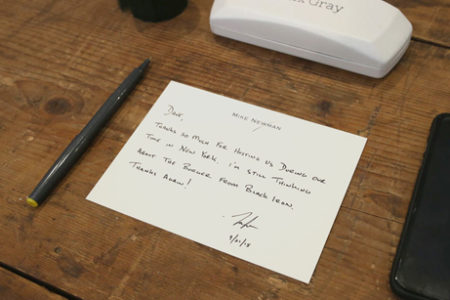 Gray
MIKE NEWMAN
Dave,
THANKS SO MUCH FOR HOSTING US DURING OUR
TIME IN NEW YORK. I'M STILL THINKING
ABOUT THE BURGER FROM BLACK IRON.
THANKS AGAIN!